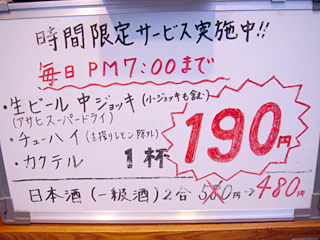 時間限定サービス実施中!!
毎日PM7:00まで
・生ビール中ジョッキ(小ジョッキも含む)
(アサヒスーパードライ)
・チューハイ(生搾りレモン除外)
・カクテル 1杯 190円
日本酒(一級酒)2合 580円→480円